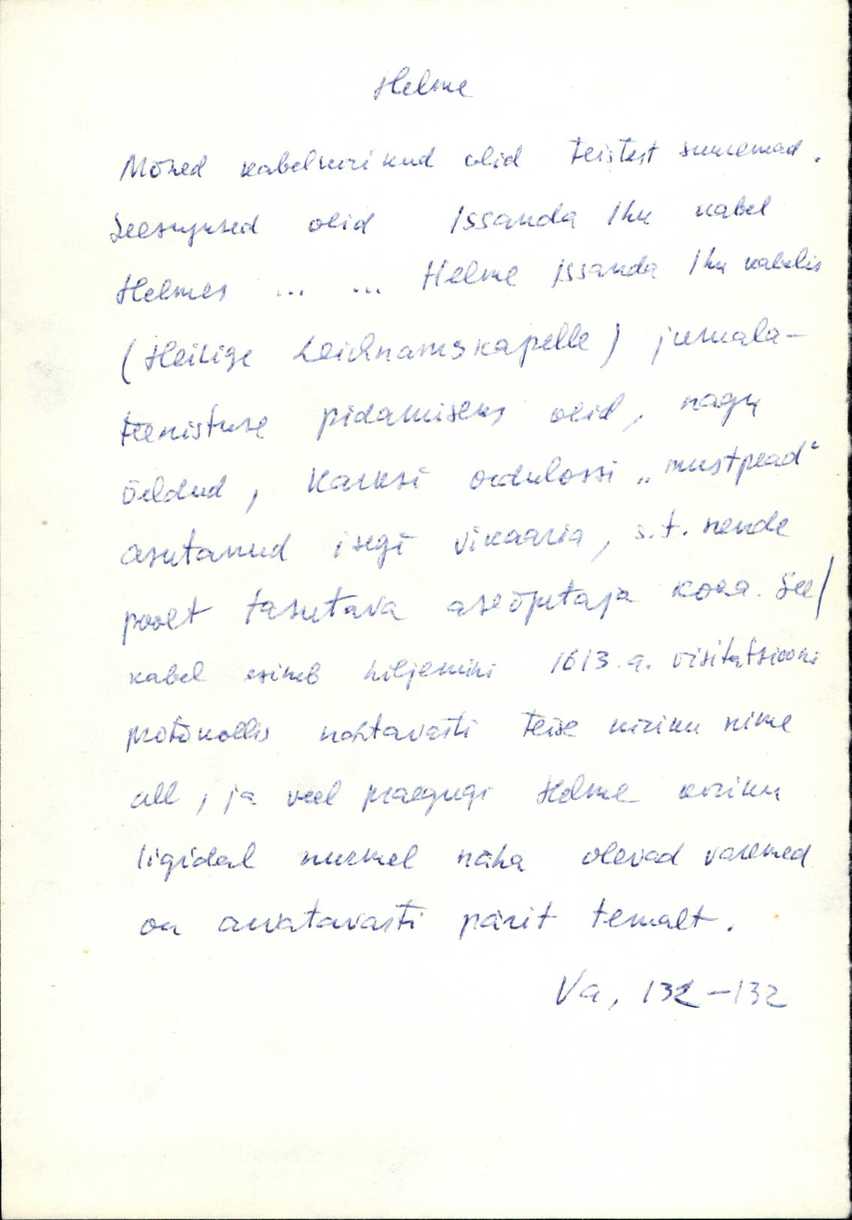 Helme
Mõned kabelkirikud olid teistest suuremad.
Seesugused olid Issanda Ihu kabel
Helmes ... ... Helme Issanda Ihu kabelis
(Heilige Leichnamskapelle) jumala-
teenistuse pidamiseks olid, nagu
öeldud, Karksi ordulossi „mustpead"
asutanud isegi vikaaria, s.t. nende
poolt tasutava aseõpetaja koha. See/
kabel esineb hiljemini 1613.a. visitatsiooni
protokollis nähtavasti teise kiriku nime
all, ja veel praegugi Helme kiriku
ligidal nurmel näha olevad varemed
on arvatavasti pärit temalt.
Va, 132-132